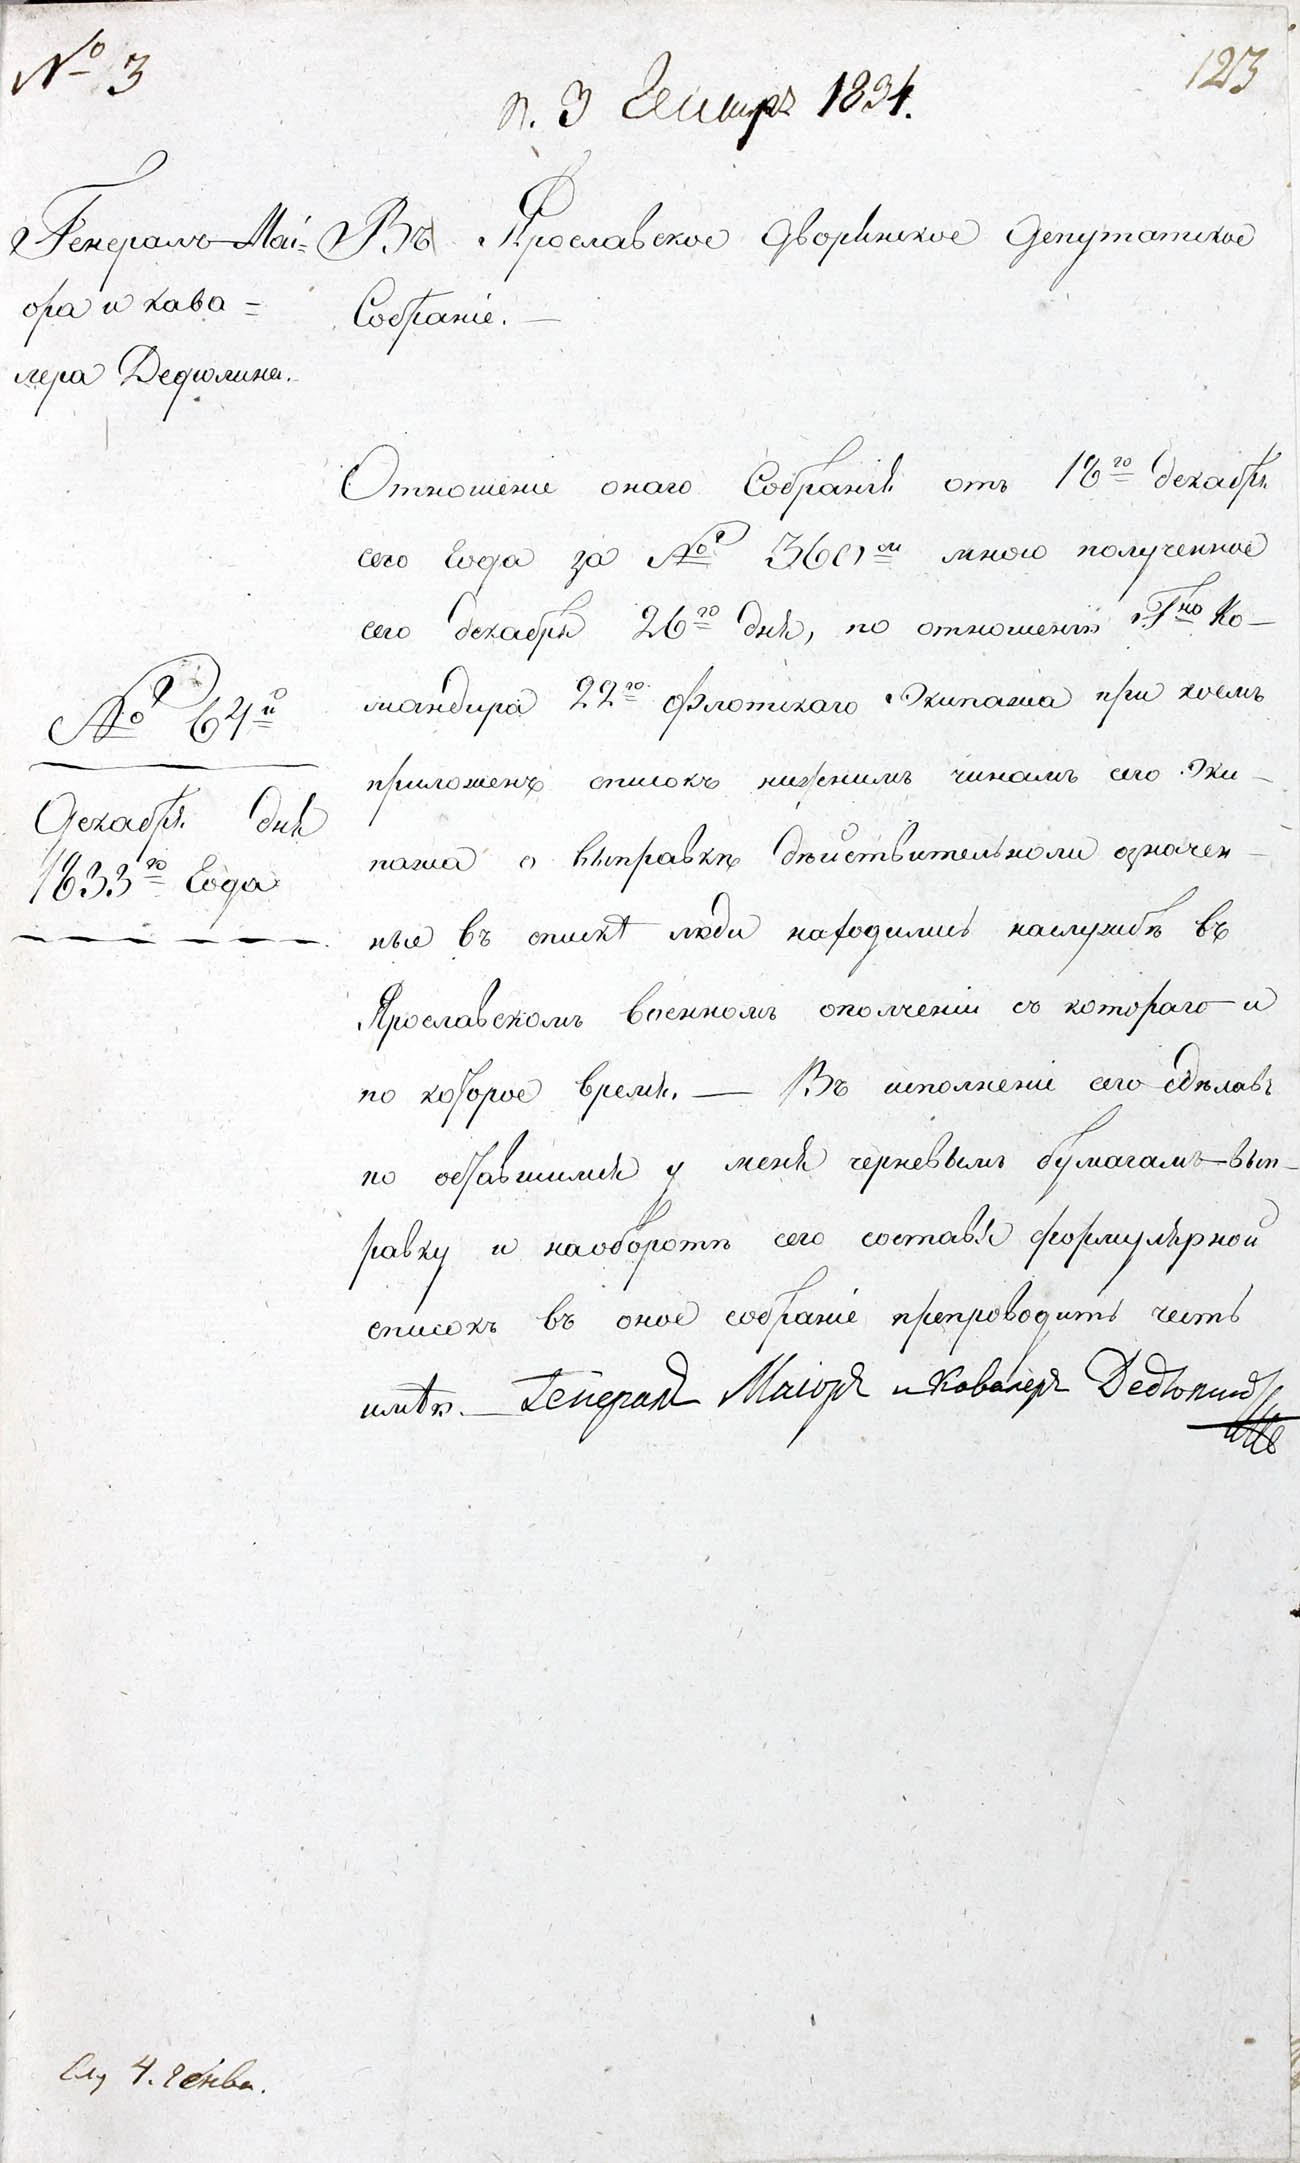 № 3
123
п. 3 Генваря 1834.
Генералъ-Маі=
ора и кава=
лера Дедюлина.
Въ Ярославское дворянское депутатское
Собраніе.—
Отношеніе онаго Собранія отъ 18го декабря
сего года за № 360м мною полученное
сего декабря 26го дня, по отношенію Гна Ко-
мандира 22го флотскаго Экипажа при коемъ
приложенъ списокъ нижнимъ чинамъ сего Эки-
пажа о выправкѣ дѣйствительноли означен-
ные въ спискѣ люди находились наслужбѣ въ
Ярославскомъ военномъ ополченіи съ котораго и
по которое время.— Въ исполненіе сего сдѣлавъ
по оставшимся у меня черневымъ бумагамъ вып-
равку и наоборотѣ сего составя формулярной
списокъ въ оное собраніе препроводить честь
имѣю.— Генералъ Маіоръ и Кавалеръ Дедюлинъ
№ 64й
Декабря дня
1833го Года
Слу 4. Генва.